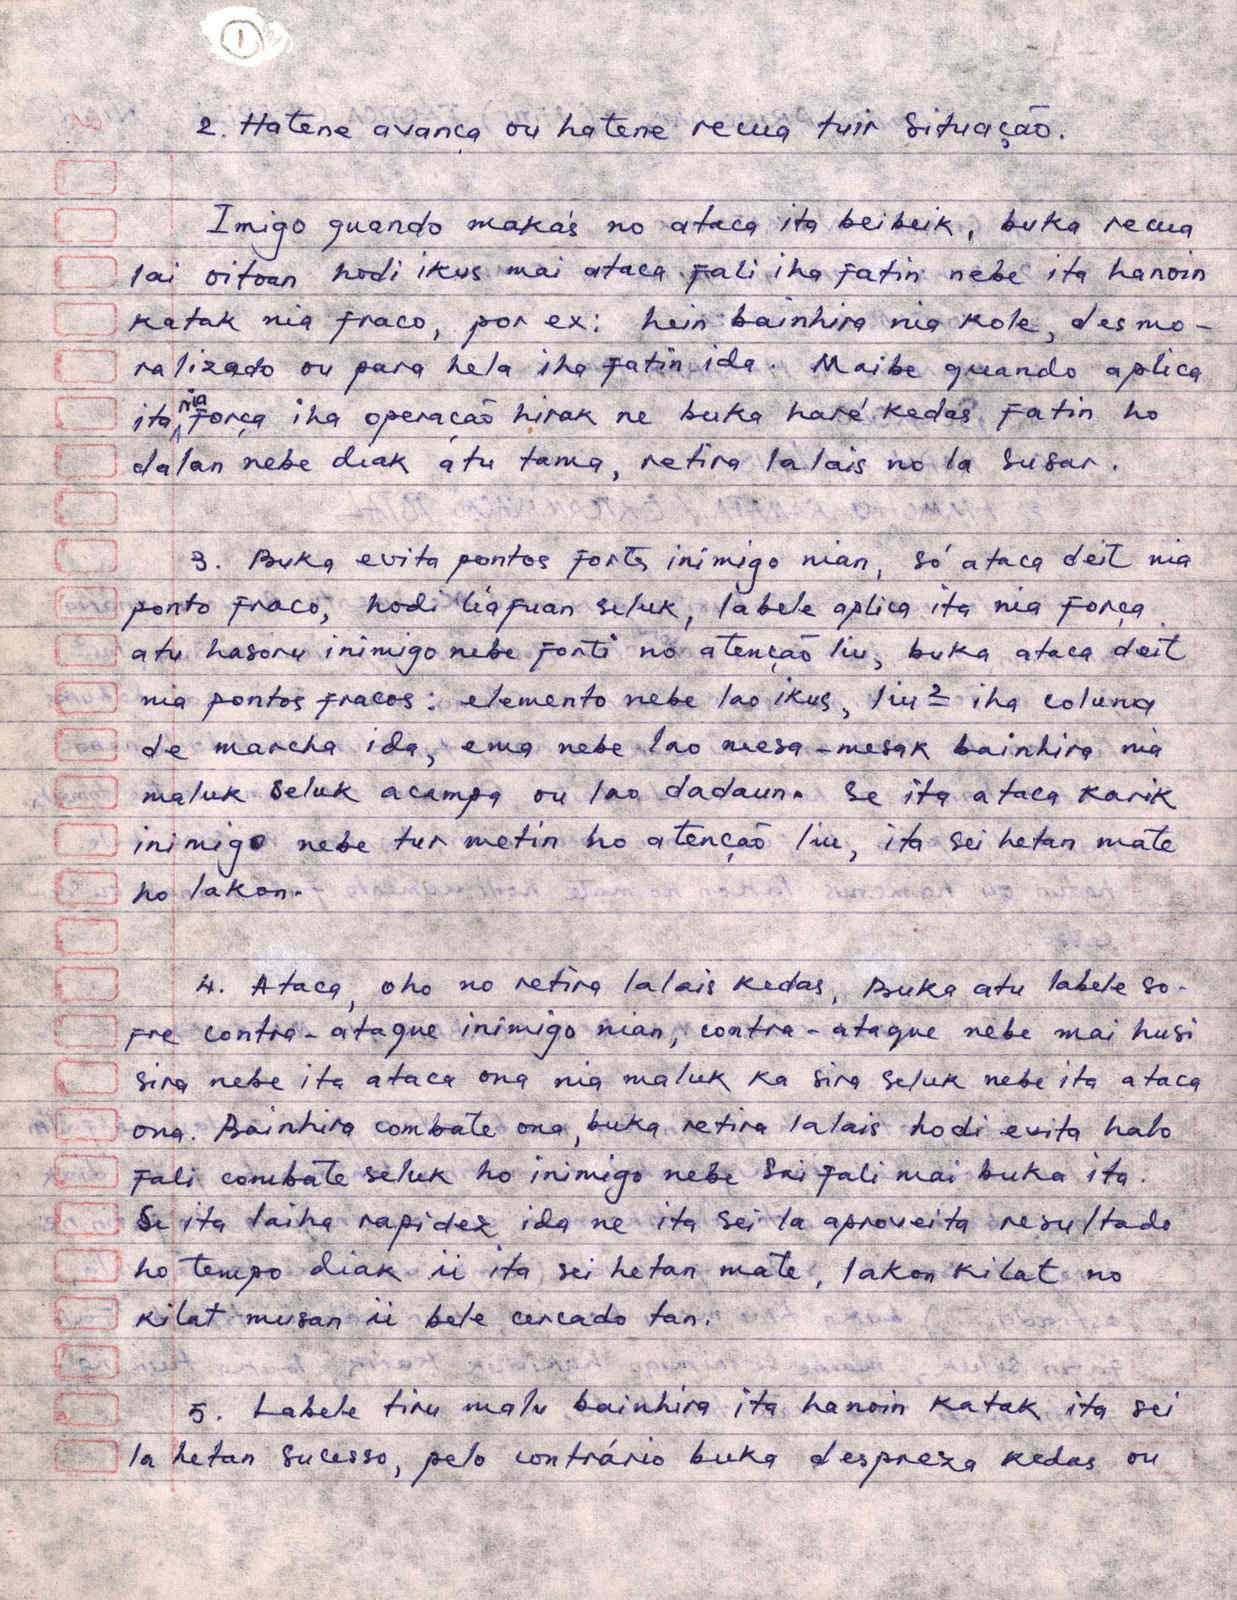 1
2. Hatene avança ou hatene recua tuir situação.
Imigo quando makás no ataca ita beibeik, buka recua
lai oitoan hodi ikus mai ataca fali iha fatin nebe ita hanoin
katak nia fraco, por ex: hein bainhira nia kole, desmo-
ralizado ou para hela iha fatin ida. Maibe quando aplica
ita nia força iha operação hirak ne buka haré kedas fatin ho
dalan nebe diak atu tama, retira lalais no la susar.
3. Buka evita pontos fortes inimigo nian, só ataca deit nia
ponto fraco, hodi liafuan seluk, labele aplica ita nia força
atu hasoru inimigo nebe forti no atenção liu, buka ataca deit
nia pontos fracos: elemento nebe lao ikus, liu² iha coluna
de marcha ida, ema nebe lao mesa-mesak bainhira nia
maluk seluk acampa ou lao dadaun. Se ita ataca karik
inimigo nebe tur metin ho atenção liu, ita sei hetan mate
ho lakon.
4. Ataca, oho no retira lalais kedas. Buka atu labele so-
fre contra-ataque inimigo nian, contra-ataque nebe mai husi
sira nebe ita ataca ona nia maluk ka sira seluk nebe ita ataca
ona. Bainhira combate ona, buka retira lalais hodi evita halo
fali combate seluk ho inimigo nebe sei fali mai buka ita.
Se ita laiha rapidez ida ne ita sei la aproveita resultado
ho tempo diak ii ita sei hetan mate, lakon kilat no
kilat musan ii bele cercado tan.
5. Labele tiru malu bainhira ita hanoin katak ita sei
la hetan sucesso, pelo contrário buka despreza kedas ou